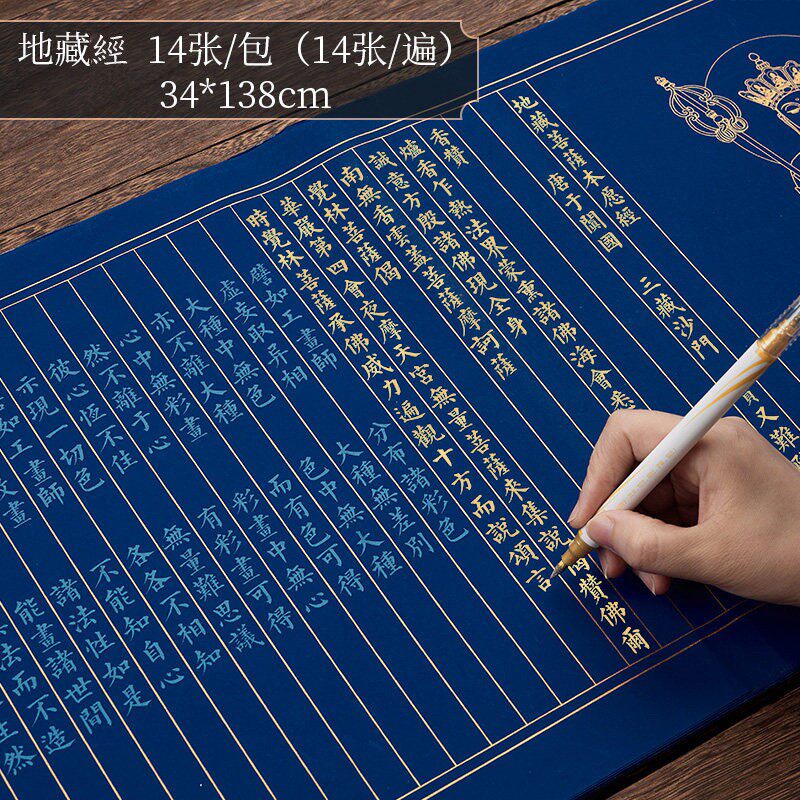 地藏經 14张/包（14张/遍）
34*138cm
地藏菩薩本愿經
唐于闐國 三藏沙門
又難
香贊
爐香乍熱法界蒙熏諸佛海會悉
誠意方殷諸佛現全身
南無香雲蓋菩薩摩訶薩
覺林菩薩偈
華嚴第四會夜摩天宮無量菩薩來集說贊佛爾
時覺林菩薩承佛威力遍觀十方而說頌言
譬如工畫師 分布諸彩色
虛妄取異相 大種無差別
大種中無色 色中無大種
亦不離大種 而有色可得
心中無彩畫 彩畫中無心
然不離于心 有彩畫可得
彼心恆不住 無量難思議
示現一切色 各各不相知
如工畫師 不能知自心
畫 諸法性如是
能畫諸世間
法而不造